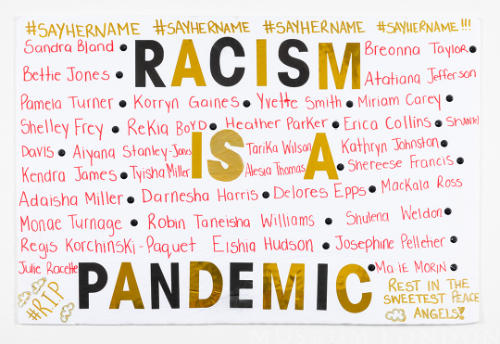 #SAYHERNAME #SAYHERNAME #SAYHERNAME #SAYHERNAME!!!
Sandra Bland • RACISM Breonna Taylor •
Bettie Jones • Atatiana Jefferson
Pamela Turner • Korryn Gaines • Yvette Smith • Miriam Carey •
Shelley Frey • Rekia Boyd • Heather Parker • Erica Collins •
Davis • Aiyana Stanley-Jones IS Tarika Wilson A Kathryn Johnston •
Kendra James • Tyisha Miller Alesia Thomas • Shereese Francis •
Adaisha Miller • Darnesha Harris • Delores Epps • MacKala Ross
Monae Turnage • Robin Taneisha Williams • Shulena Weldon •
Regis Korchinski-Paquet Eishia Hudson • Josephine Pelletier •
Julie Racette PANDEMIC • MORIN •
#R.I.P REST IN THE
SWEETEST PEACE
ANGELS!